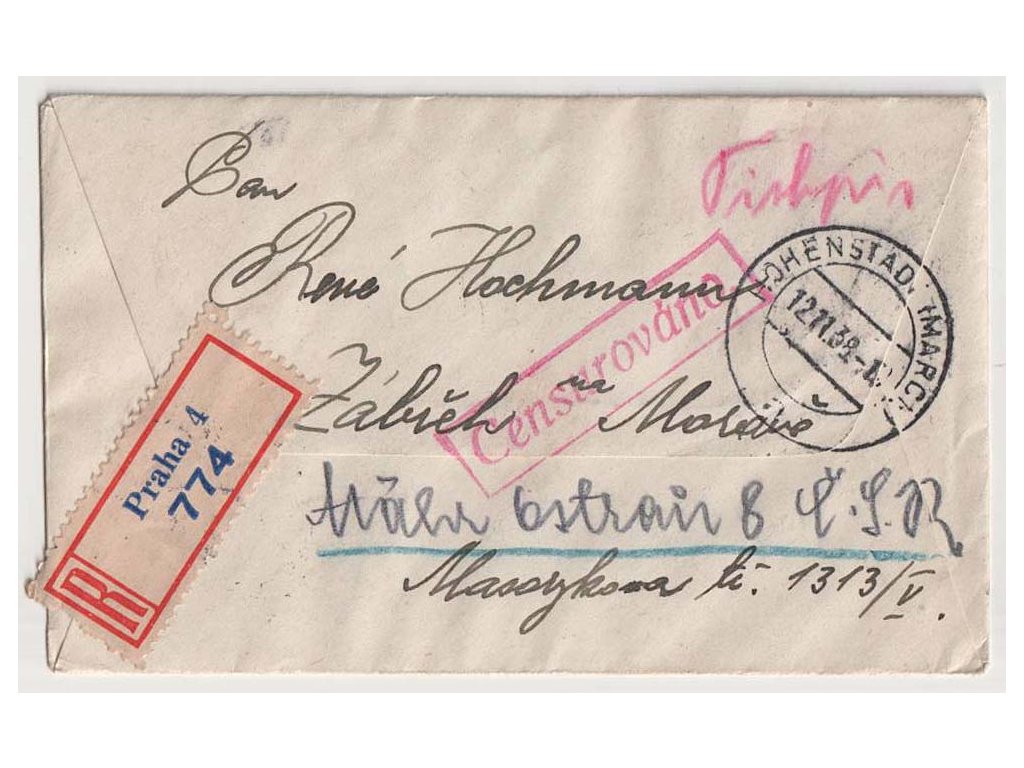 Pan
René Hochmann
Censurováno
HOHENSTADT (MARCH)
12.11.38
Zábřeh na Moravě
Praha 4
774
R
Mähr Ostrau 8 Č.S.R
Masarykova tř. 1313/V.